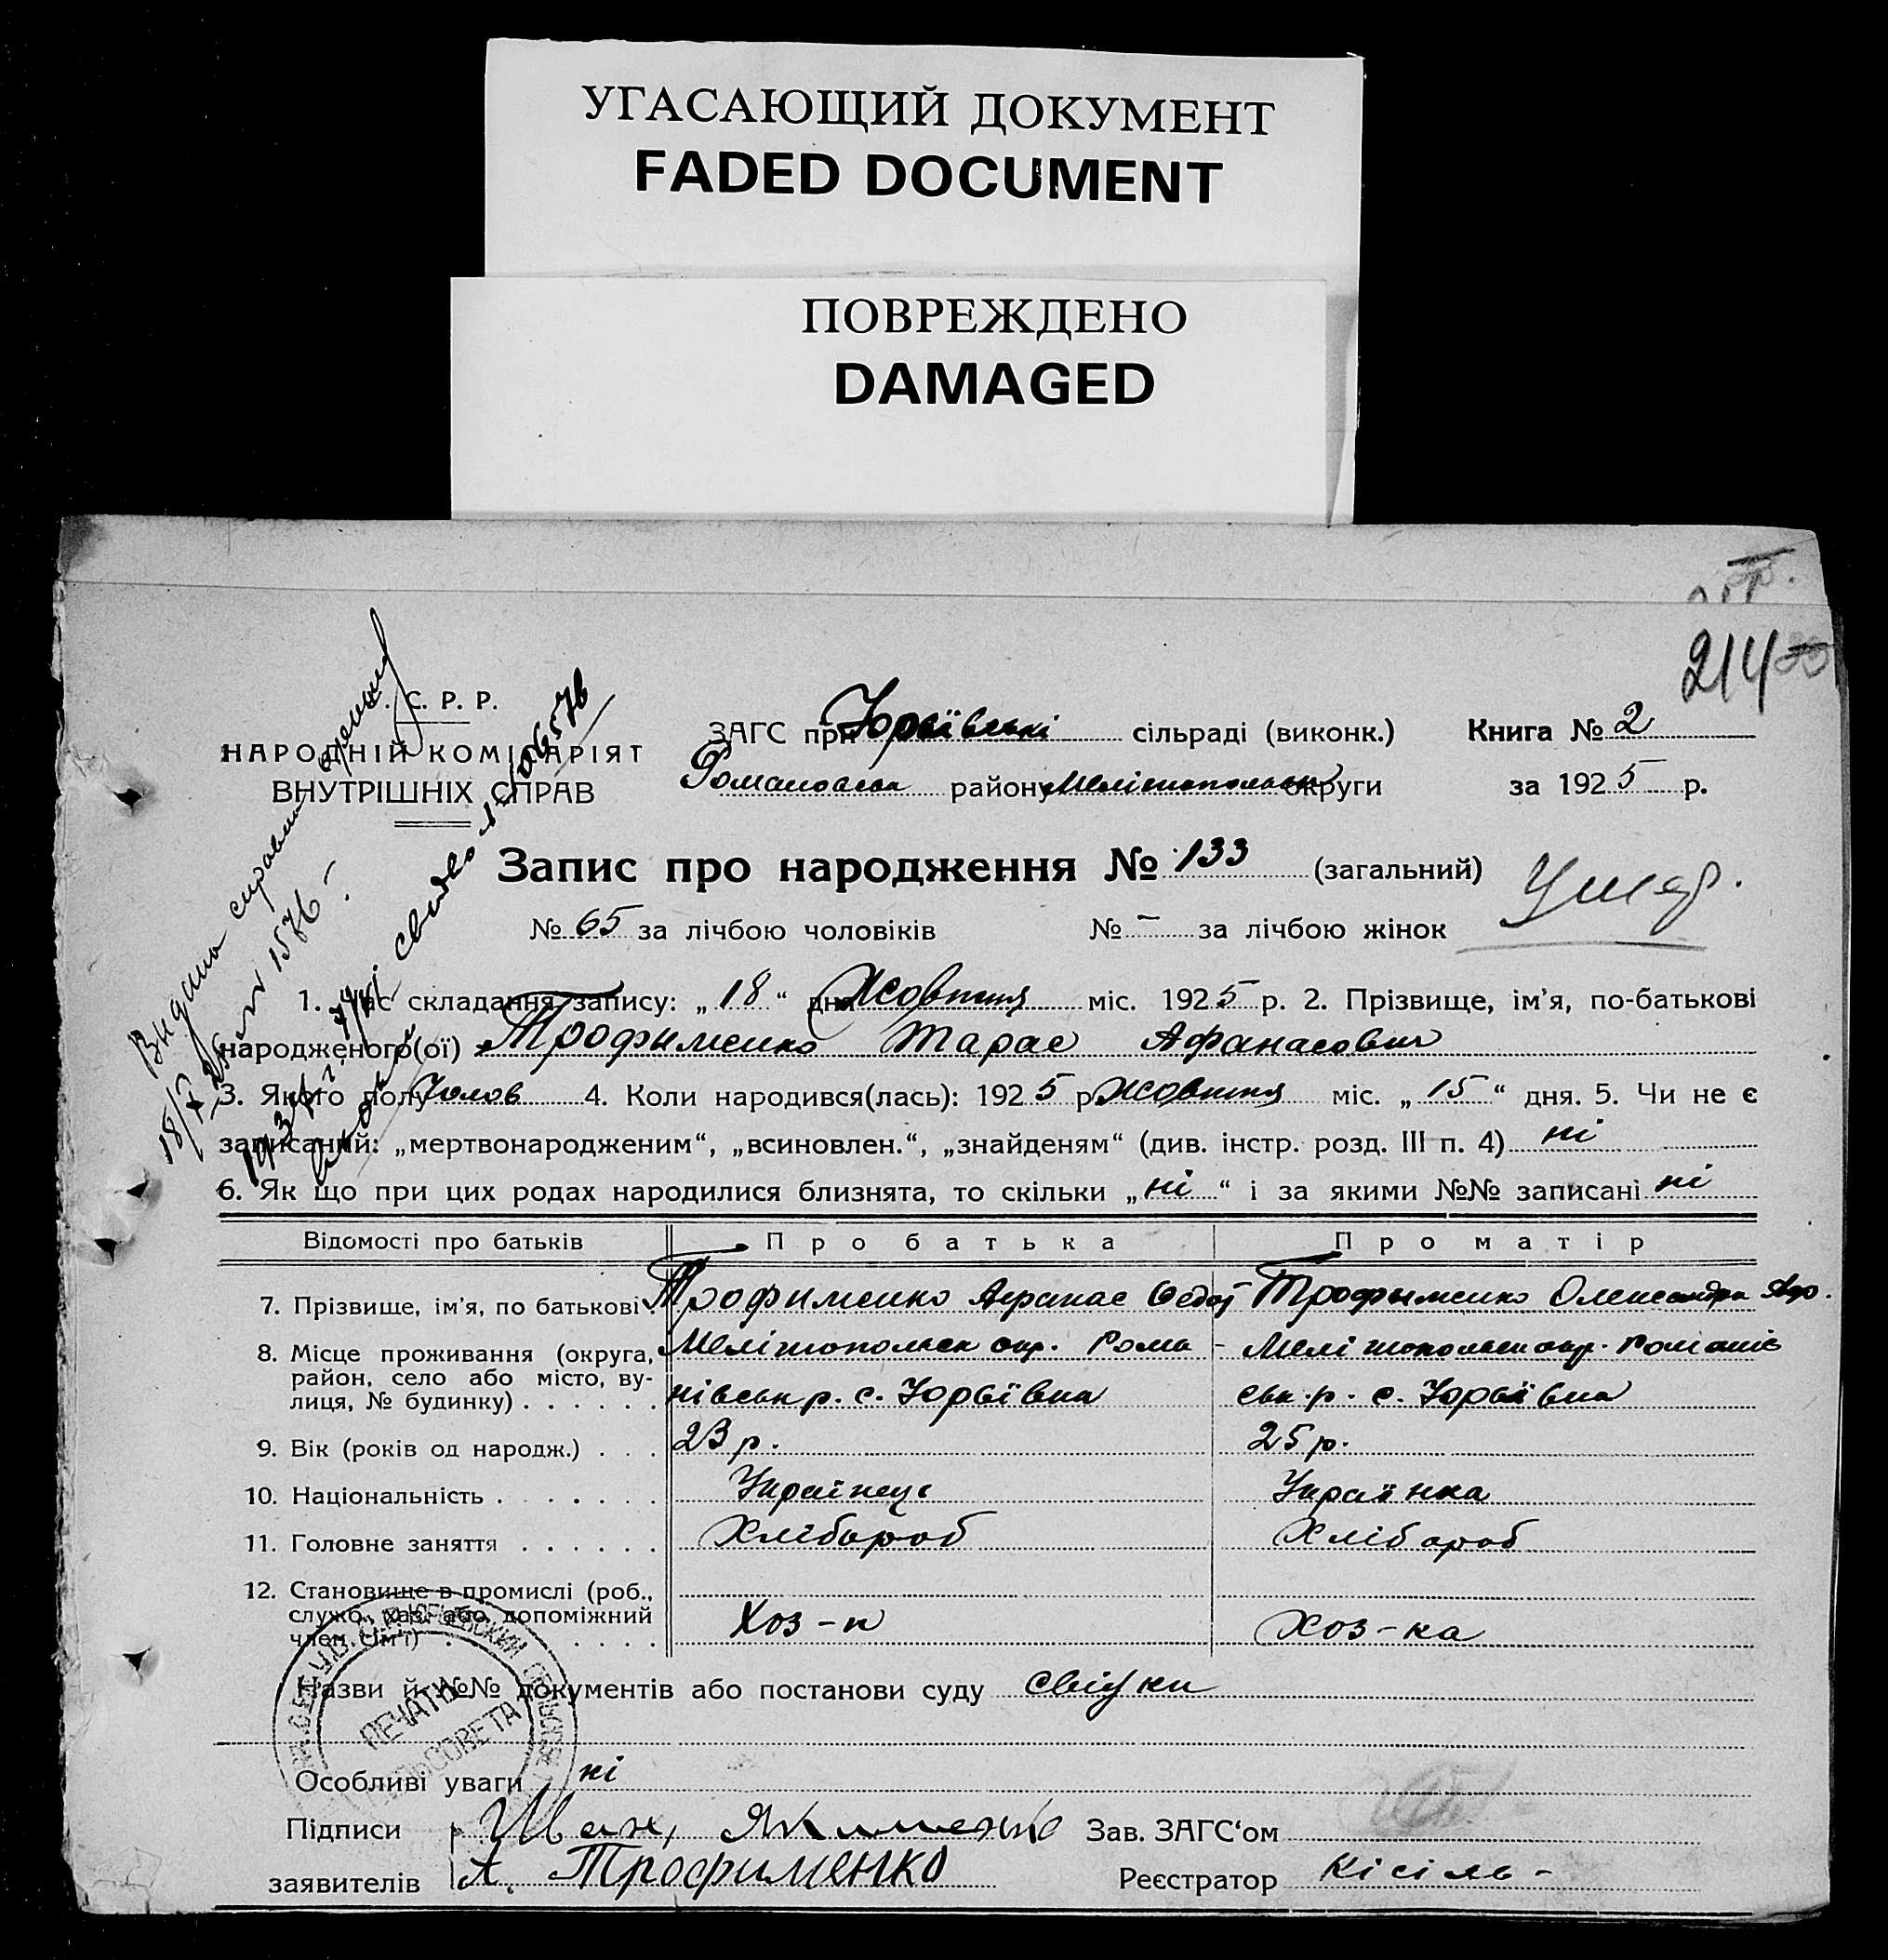 УГАСАЮЩИЙ ДОКУМЕНТ
FADED DOCUMENT
ПОВРЕЖДЕНО
DAMAGED
214
С. Р. Р.
НАРОДНІЙ КОМІСАРІЯТ
ВНУТРІШНІХ СПРАВ
ЗАГС при Юрьївські сільраді (виконк.) Книга № 2
району округи за 1925 р.
Запис про народження № 133 (загальний)
№ 65 за лічбою чоловіків № – за лічбою жінок
Умер.
1. Час складання запису: „18“ дня Жовтня міс. 1925 р. 2. Прізвище, ім’я, по-батькові
народженого(ої) Трофименко Тарас Афанасович
3. Якого полу Чолов 4. Коли народився(лась): 1925 р. Жовтня міс. „15“ дня. 5. Чи не є
записаний: „мертвонародженим“, „всиновлен.“, „знайденям“ (див. інстр. розд. III п. 4) ні
6. Як що при цих родах народилися близнята, то скільки „ні“ і за якими №№ записані ні
Відомості про батьків Про батька Про матір
7. Прізвище, ім’я, по батькові Трофименко Афанас Федот Трофыменко Олександра
8. Місце проживання (округа, Мелітопольск окр. Рома - Мелітопольск окр. Романів
район, село або місто, ву-
лиця, № будинку) нівськ р. с. Юрьївка ськ. р. с. Юрьївка
9. Вік (років од народж.) 23 р. 25 р.
10. Національність Українець Українка
11. Головне заняття Хлібороб Хлібороб
12. Становище в промислі (роб.,
служб., хаз. або допоміжний
член сім’ї) Хоз-н Хоз-ка
Назви й №№ документів або постанови суду свідки
ПЕЧАТЬ
СЕЛЬСОВЕТА
Особливі уваги ні
Підписи Иван, Якименко Зав. ЗАГС‘ом
заявителів А. Трофименко Реєстратор Кісіль -
Видана справка